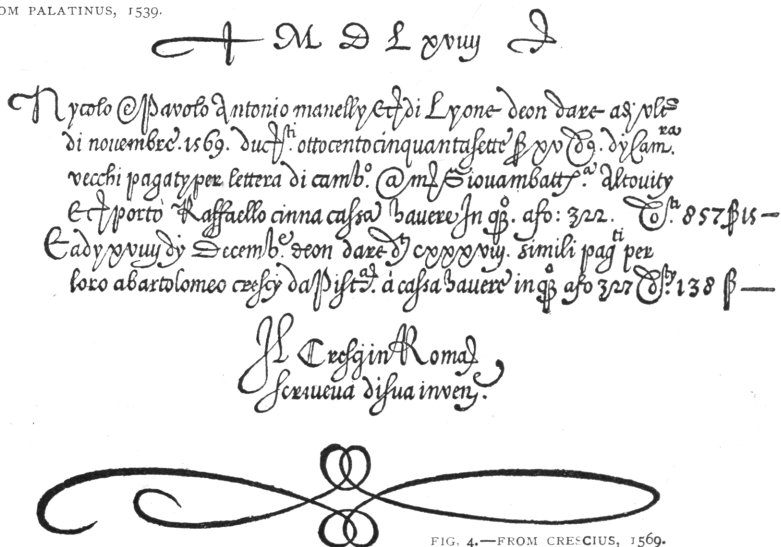 OM PALATINUS, 1539.
M D L xviiij
Nycolo & Pavolo Antonio manelly & di Lyone deon dare adj
di novembre. 1569. ottocentocinquantasette xv dy Cam.ra
vecchi pagaty per lettera di camb.o @ Giovambatt.a Altovity
porto Raffaello cinna cassa havere In q.o afo: 322. 857 ß 15 —
E ady xviiij dy Decemb.e deon dare cxxxviij. simili pag.ti per
loro a bartolomeo crescy da a cassa havere in q.o afo 327 138 ß —
Il Cresci in Roma
scriveva di sua inven.
FIG. 4.—FROM CRESCIUS, 1569.